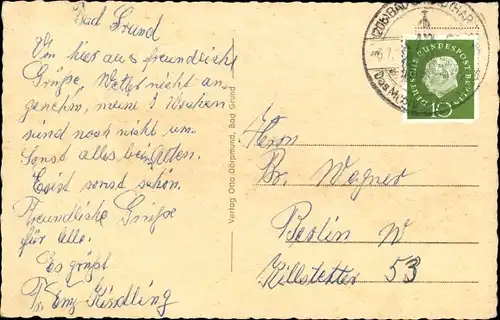 Bad Grund
Von hier aus freundliche
Grüße, Wetter nicht an-
genehm, meine 3 Wochen
sind noch nicht um.
Sonst alles beim Alten.
Es ist sonst schön.
Freundliche Grüße
für alle.
Es grüßt
Kindling
Verlag Otto Dörfmund, Bad Grund
(20b) BAD GRUND (HARZ)
DEUTSCHE BUNDESPOST BERLIN
10
Herrn
Br. Wagner
Berlin W
53